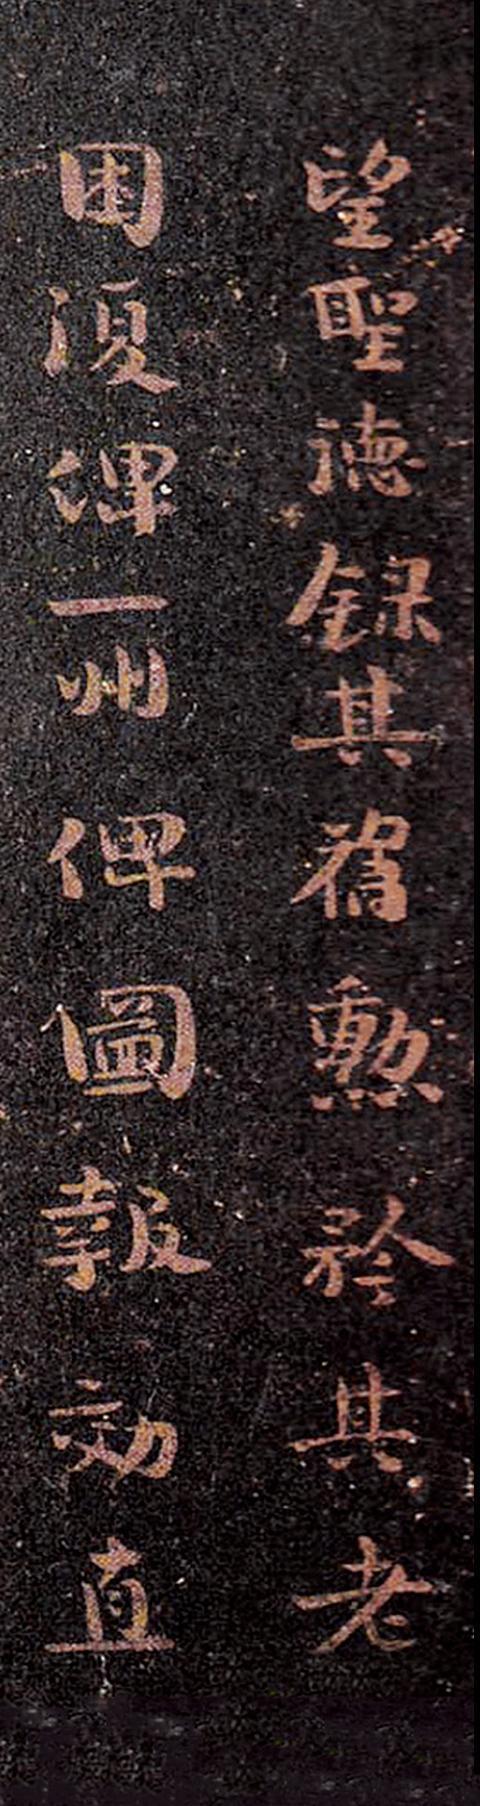 望聖德録其舊勲矜其老
困復俾一州俾圖報効直